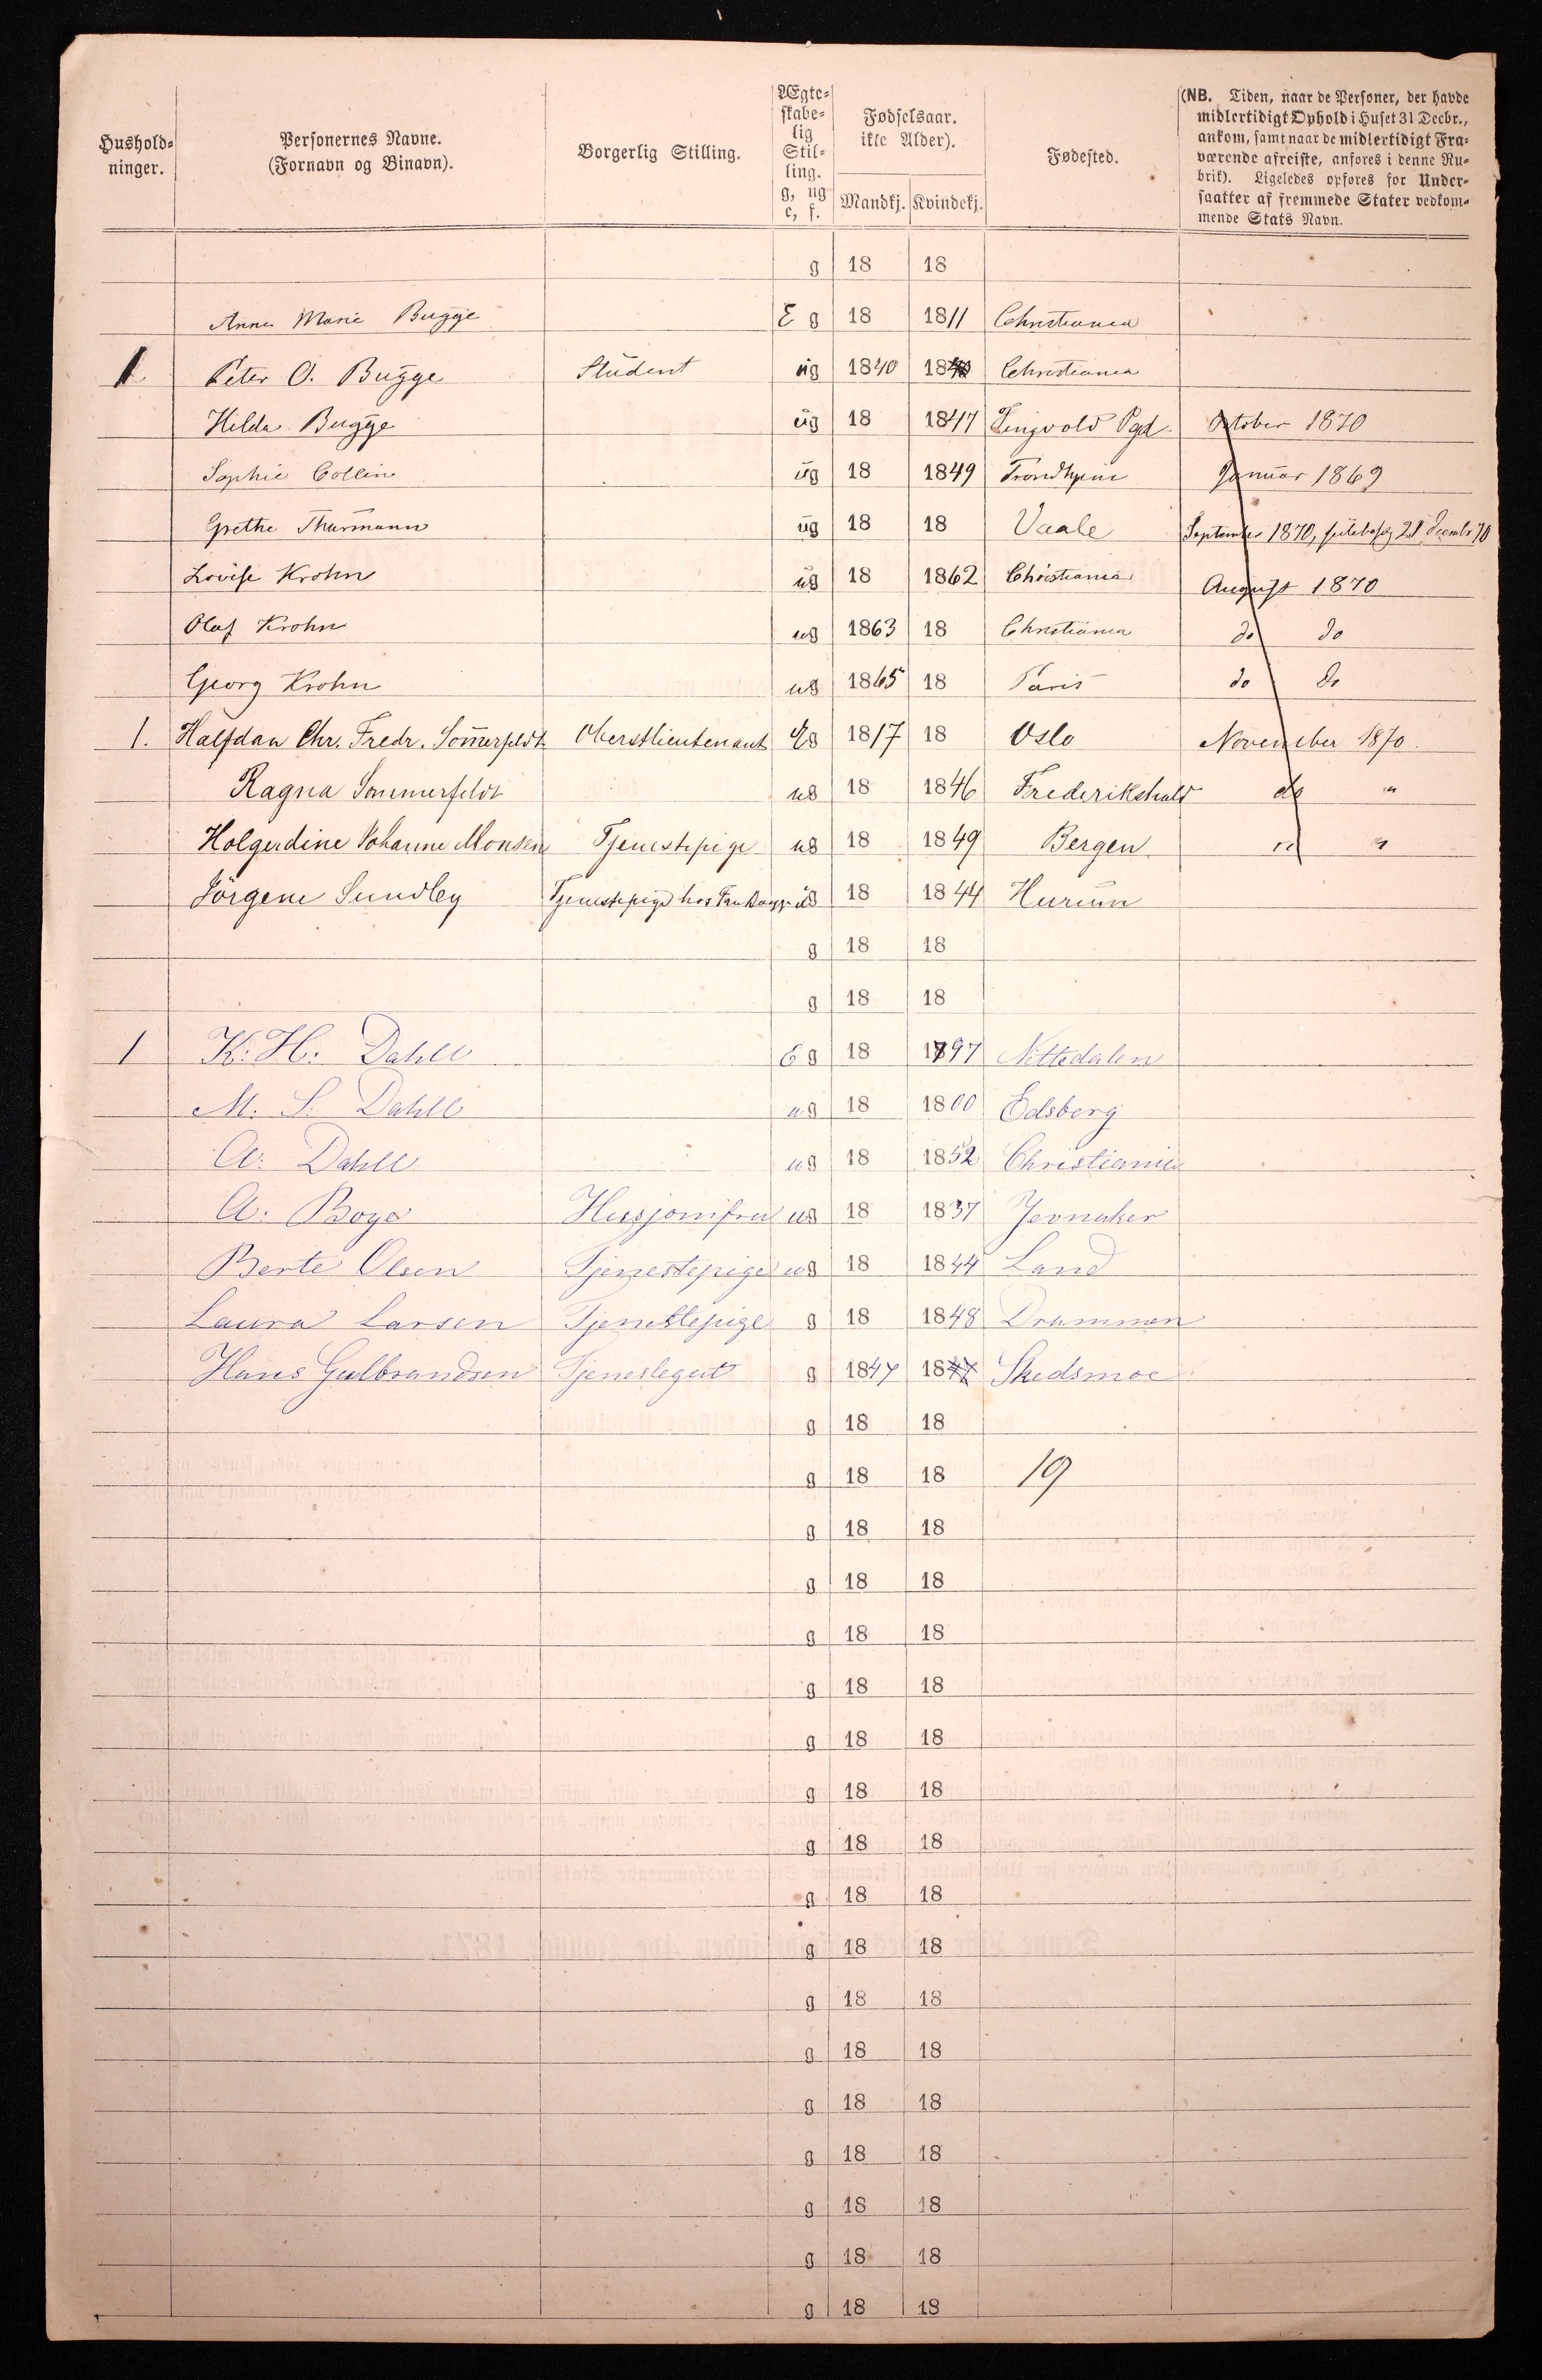 Hushold-
ninger.
Personernes Navne.
(Fornavn og Binavn).
Borgerlig Stilling.
Ægte-
skabe-
lig
Stil-
ling.
g, ug
e, f.
Fødselsaar.
ikke Alder).
Mandkj. Kvindekj.
Fødested.
(NB. Tiden, naar de Personer, der havde
midlertidigt Ophold i Huset 31 Decbr.,
ankom, samt naar de midlertidigt Fra-
værende afreiste, anføres i denne Ru-
brik). Ligeledes opføres for Under-
saatter af fremmede Stater vedkom-
mende Stats Navn.
g 18 18
Anne Marie Bugge E g 18 1811 Christiania
1. Peter O. Bugge Student ug 1840 1840 Christiania
Hilda Bugge ug 18 1847 Tingvold Pgd. October 1870
Sophie Collin ug 18 1849 Trondhjem Januar 1869
Grethe Thurmann ug 18 18 Vaale September 1870, 21 Decembr 70
Lovise Krohn ug 18 1862 Christiania August 1870
Olaf Krohn ug 1863 18 Christiania do do
Georg Krohn ug 1865 18 Paris do do
1. Halfdan Chr. Fredr. Sommerfeldt Oberstlieutenant Eg 1817 18 Oslo November 1870.
Ragna Sommerfeldt ug 18 1846 Frederikshald do "
Holgerdine Johanne Monsen Tjenestepige ug 18 1849 Bergen " "
Jörgene Sundby Tjenestepige hos Fru Bugge ug 18 1844 Hurum
g 18 18
g 18 18
1 K: H: Dahll E g 18 1797 Nittedalen
M. S. Dahll ug 18 1800 Edsberg
A: Dahll ug 18 1852 Christiania
A: Boye Husjomfru ug 18 1837 Jevnaker
Berte Olsen Tjenestepige ug 18 1844 Land
Laura Larsen Tjenestepige g 18 1848 Drammen
Hans Gulbrandsen Tjenestegut g 1847 1847 Skedsmoe
g 18 18
g 18 18 19
g 18 18
g 18 18
g 18 18
g 18 18
g 18 18
g 18 18
g 18 18
g 18 18
g 18 18
g 18 18
g 18 18
g 18 18
g 18 18
g 18 18
g 18 18
g 18 18